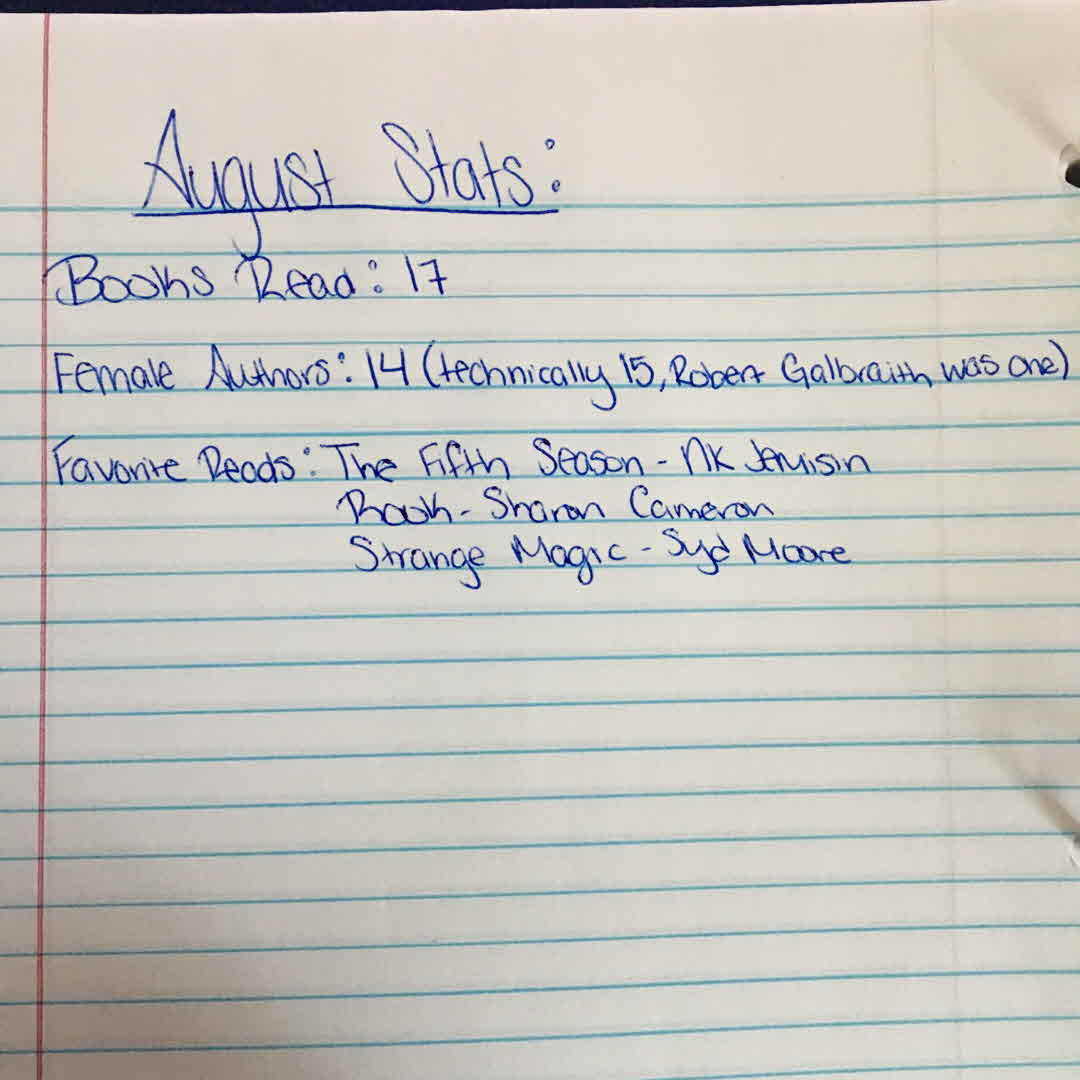 August Stats:
Books Read: 17
Female Authors: 14 (technically 15, Robert Galbraith was one)
Favorite Reads: The Fifth Season - NK Jemisin
Rook - Sharon Cameron
Strange Magic - Syd Moore